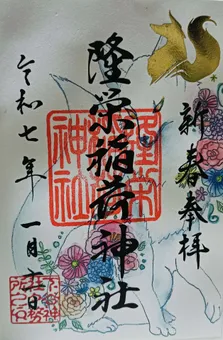 新春奉拝
隆栄稲荷神社
令和七年一月吉日
隆栄
稲荷
神社